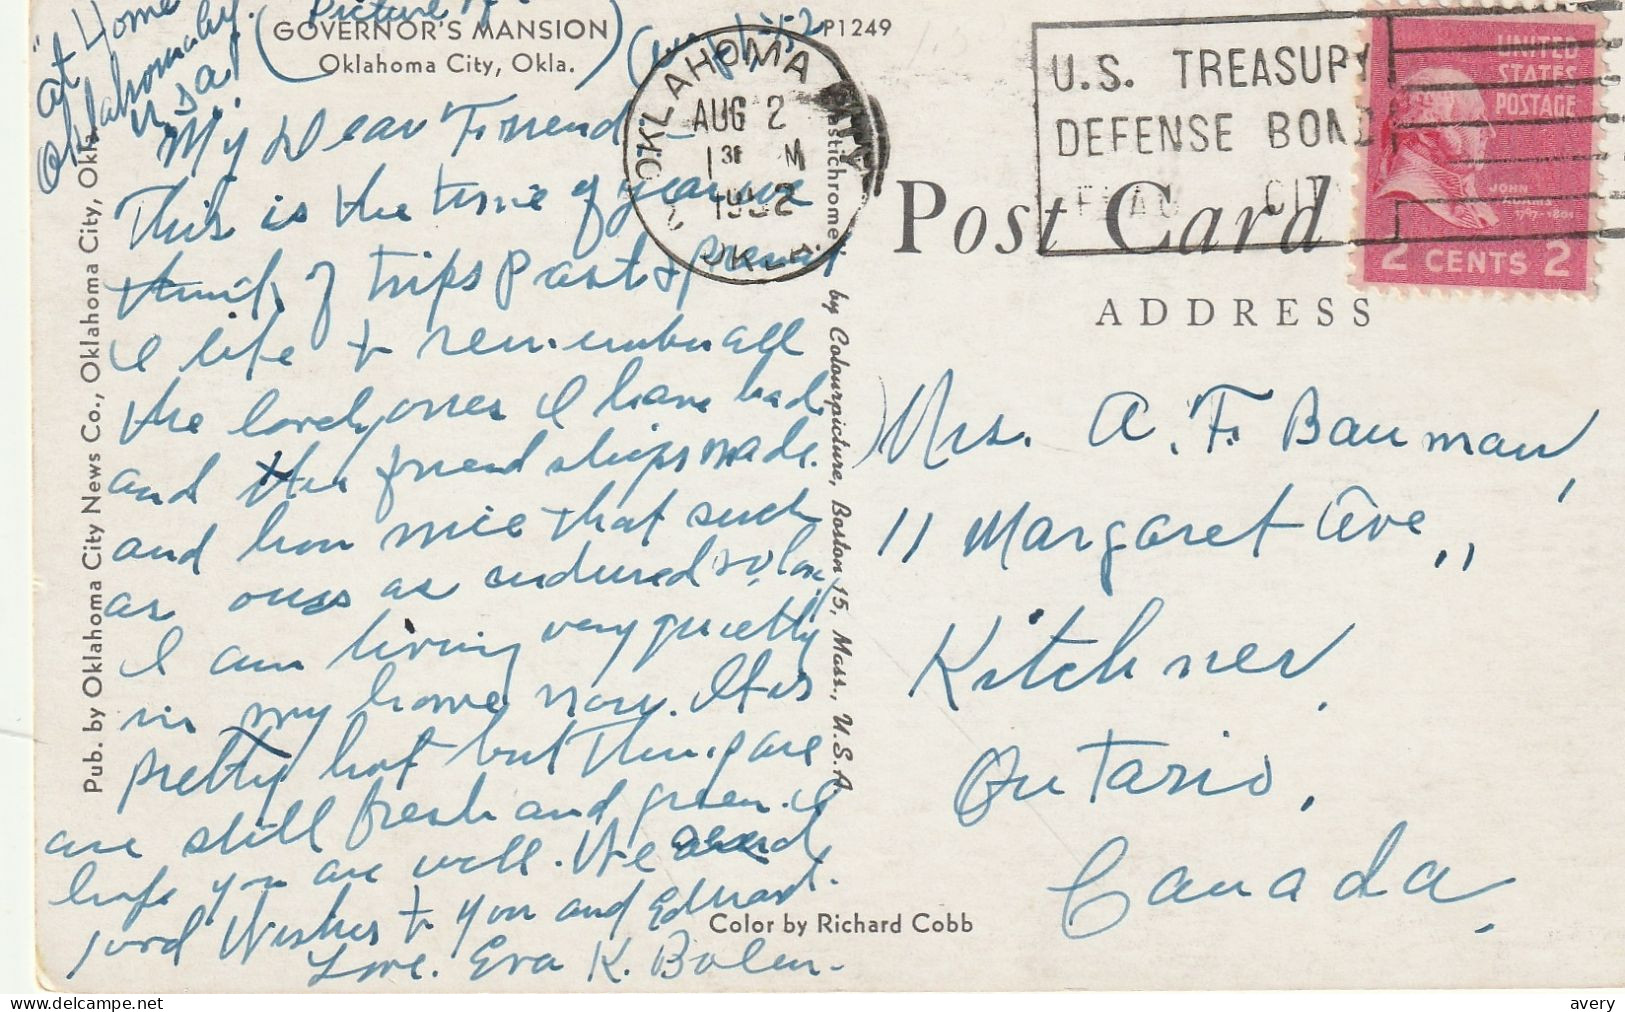 "At Home
Oklahoma City.
USA
(Picture
GOVERNOR'S MANSION
Oklahoma City, Okla.
P1249
OKLAHOMA CITY
AUG 2
1 30 M
1952
OKLA.
U.S. TREASURY
DEFENSE BOND
UNITED
STATES
POSTAGE
JOHN
ADAMS
1797-1801
2 CENTS 2
Post Card
ADDRESS
My Dear Friend -
This is the time of year we
think of trips past &
I life & remember all
the lovely ones I have had.
and the friendships made.
and how nice that such
as ours as endured so long
I am living very quietly
in my home now. It is
pretty hot but Things are
are still fresh and green. I
hope you are well. We send
Wishes to you and Edward.
Love. Eva K. Bolen.
Mrs. A. F. Bauman,
11 Margaret Ave.,
Kitchner,
Ontario,
Canada.
Pub. by Oklahoma City News Co., Oklahoma City, Okla.
"Plastichrome" by Colourpicture, Boston 15, Mass., U.S.A.
Color by Richard Cobb
avery